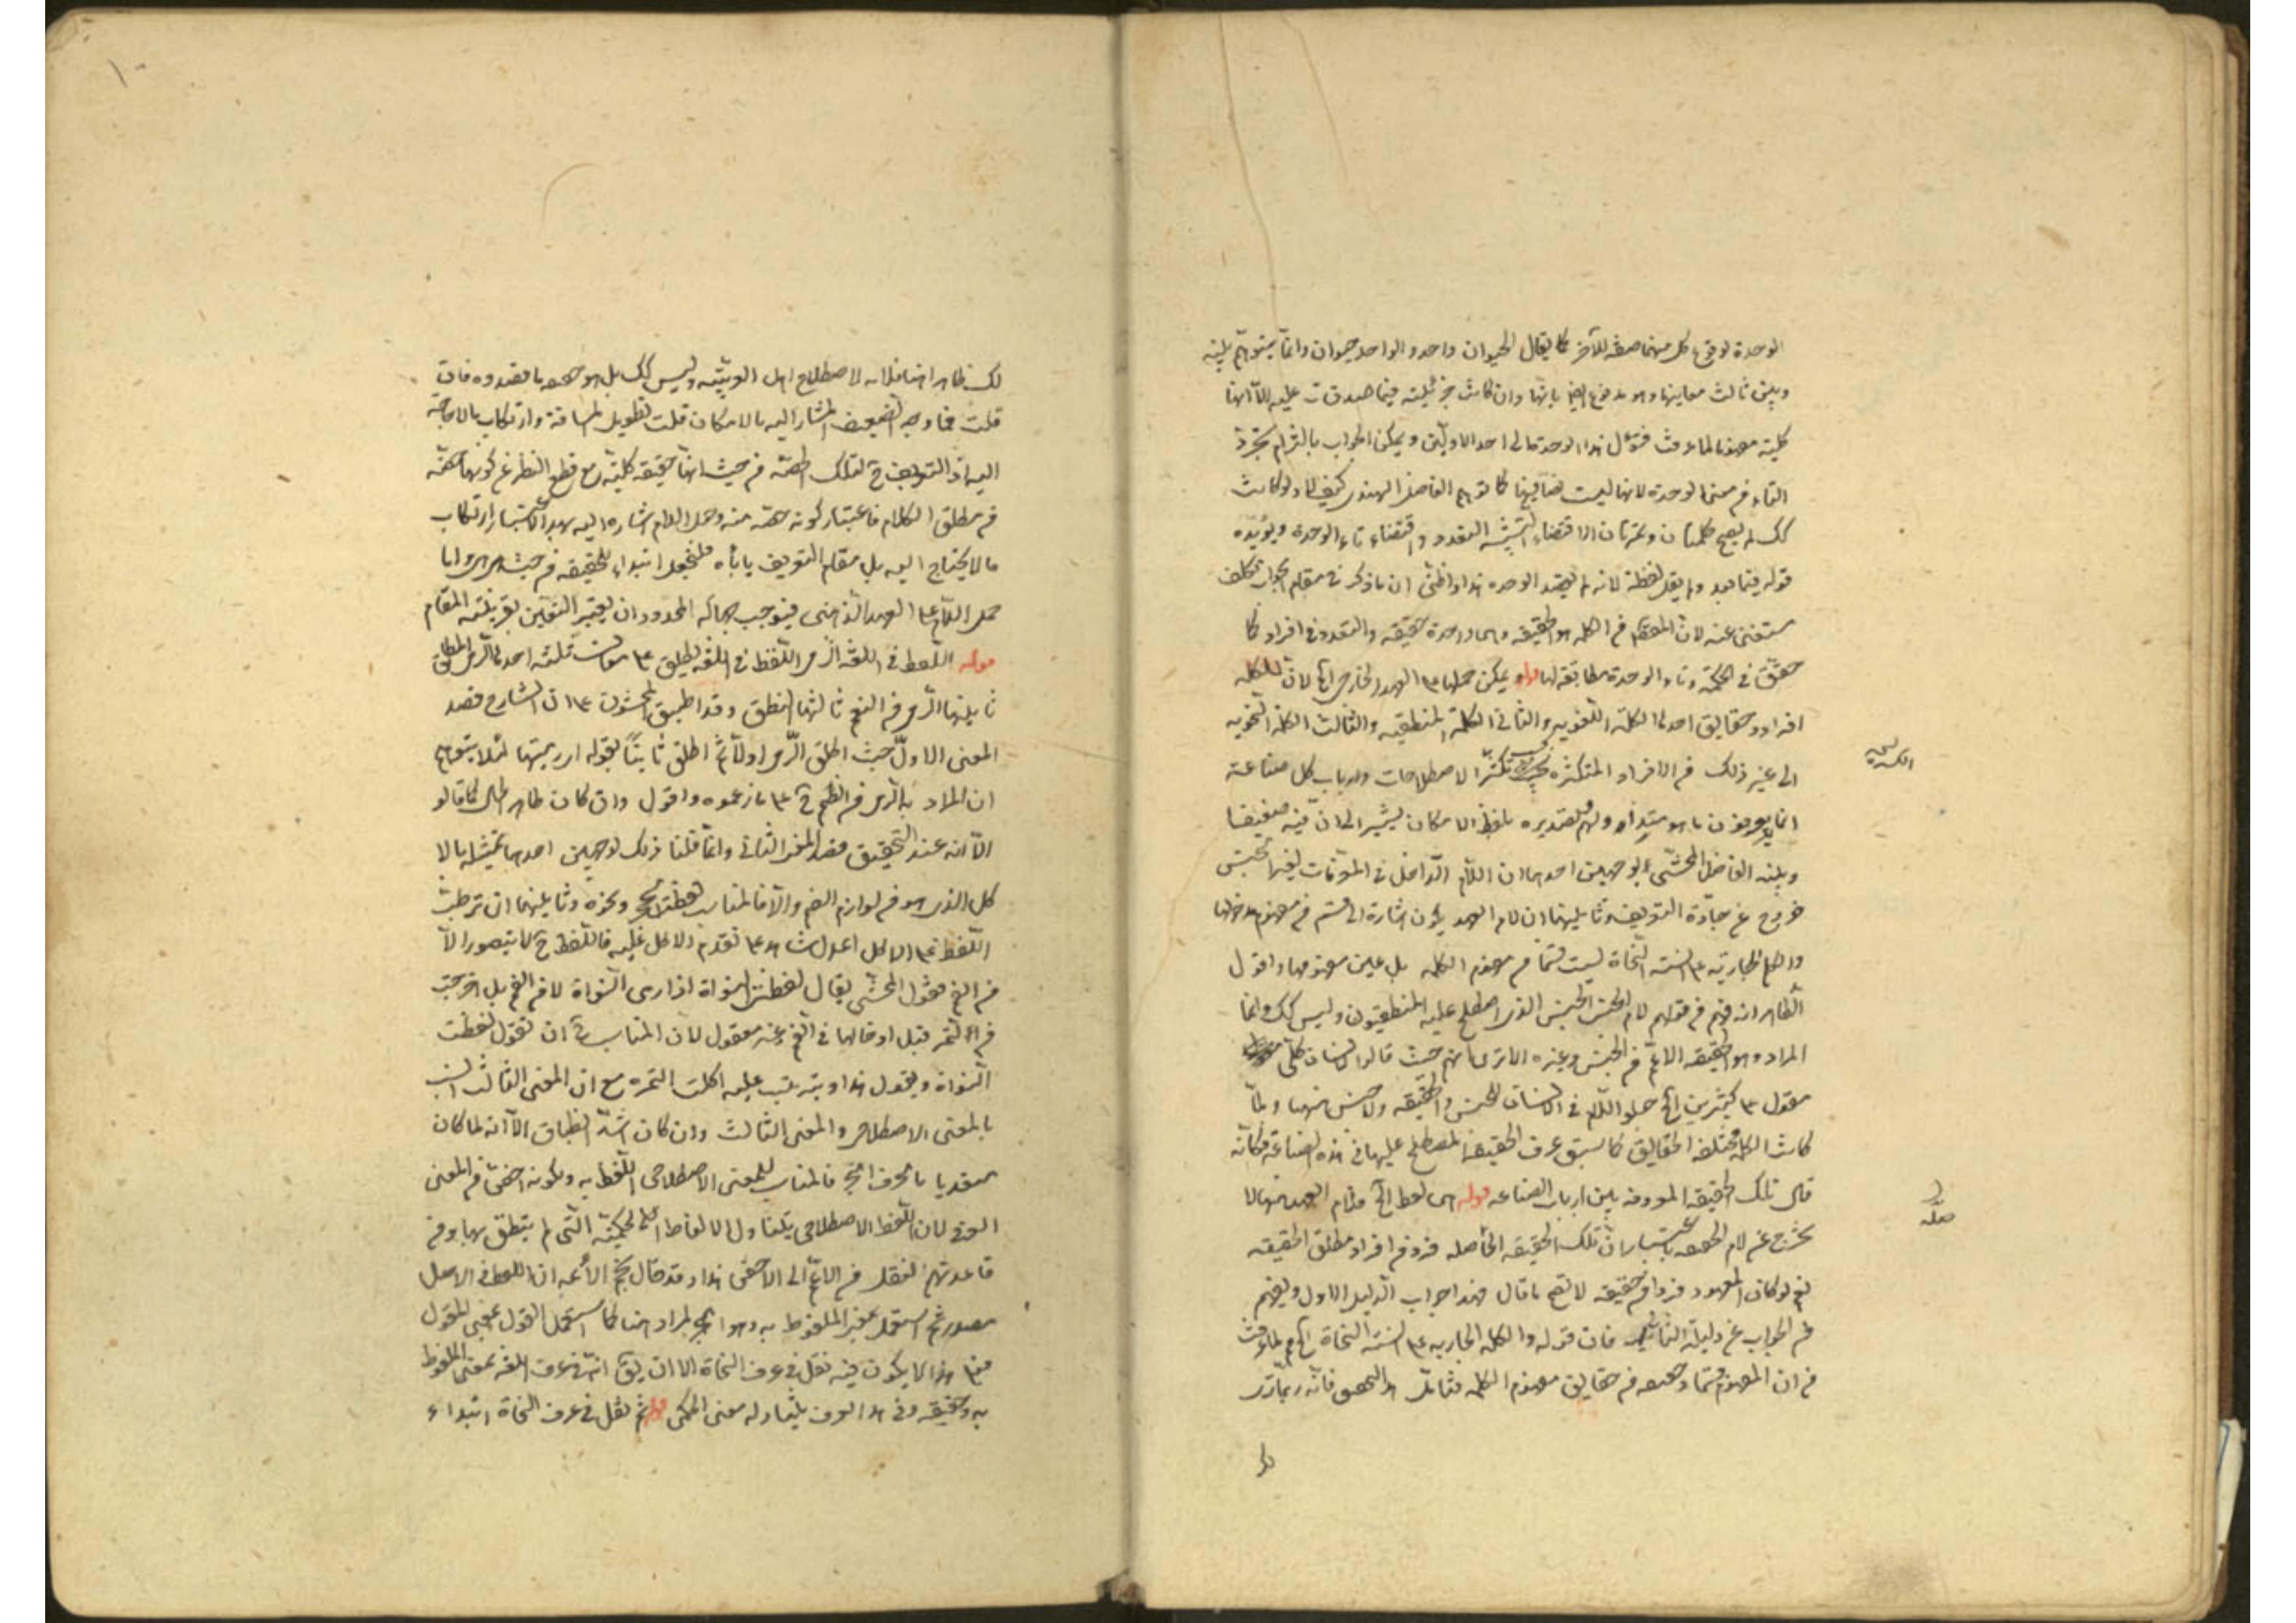 الوحدة لوقوع كل منهما صفة للآخر كما يقال الحيوان واحد والواحد حيوان وانما يتوهم بينه
وبين ثالث معاينها وهو مدفوع ايضا بانها وان كانت جزئية فيما صدقت عليه الا انها
كلية مفهوما لما عرفت فتؤل هذا الوحدة الى احد الاولين ويمكن الجواب بالتزام تجرد
التاء فمن معنى الوحدة لانها ليست كما توهم الفاضل الهندي كيف لا ولو كانت
كك لم يصح كلمتان وتمرتان لاقتضاء التثنية التعدد واقتضاء تاء الوحدة ويؤيده
قوله فيما بعد ولم يقل لفظة لانه لم يقصد الوحدة هذا واظن ان ما ذكر في مقام الجواب تكلف
مستغنى عنه لان المعرف في الكلمة هو الحقيقة وهي واحدة حقيقة والتعدد في افراد كما
حقق في الحكمة وتاء الوحدة مطابقة لها قوله ويمكن حملها على العهد الخارجي الخ لان للكلمة
افراد وحقايق احدها الكلمة اللغوية والثاني الكلمة المنطقية والثالث الكلمة النحوية
الى غير ذلك من الافراد المتكثرة بحسب تكثر الاصطلاحات وارباب كل صناعة
انما يعرفون ما هو متداولهم وتصديره بلفظ الامكان يشير الى ان فيه ضعيفا
وبينه الفاضل المحشي بوجهين احدهما ان اللام الداخل في المعرفات لغير الجنس
خروج عن جادة التعريف وثانيهما ان لام العهد يكون اشارة الى قسم من مفهوم مدخولها
والكلمة الجارية على السنة النحاة ليست قسما من مفهوم الكلمة بل عين مفهومها واقول
الظاهر انه فهم من قولهم لام الجنس الجنس الذي اصطلح عليه المنطقيون وليس كك وانما
المراد وهو الحقيقة الاعم من الجنس وغيره الا ترى انهم حيث قالوا الانسان كلي
مقول على كثيرين الخ حملوا اللام في الانسان للجنس والحقيقة ولا جنس منها ولما
كانت الكلمة مختلفة الحقايق كما سبق عرف الحقيقة المصطلح عليها في هذه الصناعة فكانه
قال تلك الحقيقة المعروفة بين ارباب الصناعة قوله هي لفظ الخ ولام العهد منها لا
تخرج عن لام الحقيقة باعتبار ان تلك الحقيقة الحاصلة فرد من افراد مطلق الحقيقة
نعم لو كان المعهود فردا من حقيقة لاتضح ما قال فهذا جواب الدليل الاول ويفهم
ثم الجواب عن دليله الثاني فان قوله والكلمة الجارية على السنة النحاة الخ لما عرفت
من ان المفهوم قسما وحصة من حقايق مفهوم الكلمة فتأمل هذا التحقيق فانه ربما
لك ظاهرا مخالفا لاصطلاح اهل العربية وليس كك بل هو ما قصدوه فان
قلت فما وجه الضعيف المشار اليه بالامكان قلت تطويل المسافة وارتكاب ما لا حاجة
اليه اذ التعريف ح لتلك الحصة من حيث انها حقيقة كلية مع قطع النظر عن كونها حصة
من مطلق الكلام فاعتبار كونه حصة منه وجعل اللام اشارة اليه بهذا الاعتبار ارتكاب
ما لا يحتاج اليه بل مقام التعريف يأباه فلنجعل ابتداء للحقيقة من حيث هي هي واما
حمل اللام على العهد الذهني فيوجب جهالة المحدود ان لم يعتبر التعيين بقرينة المقام
قوله اللفظ في اللغة الرمي اللفظ في اللغة يطلق على معان ثلثة احدها الرمي المطلق
ثانيها الرمي من الفم ثالثها النطق وقد اطبق المحشون على ان الشارح قصد
المعنى الاول حيث اطلق الرمي اولا ثم اطلق ثانيا بقوله اي رميتها لئلا يتوهم
ان المراد به الرمي من الفم ح على ما زعموه واقول وان كان ظاهر الحال كما قالوا
الا انه عند التحقيق قصد المعنى الثاني وانما قلنا ذلك لوجهين احدهما تمثيله بالا
كل الذي هو من لوازم الفم والا فالمناسب لفظت الحجر ونحوه وثانيهما ان ترتب
اللفظ على الاكل اعدل شاهد على تقدم الاكل عليه فاللفظ ح لا يتصور الا
من الفم فقول المحشي يقال لفظت النواة اذا رمى النواة لا من الفم بل اخرجت
من التمر قبل ادخالها في الفم غير معقول لان المناسب ح ان تقول لفظت
النواة ويقول هذا ويترتب عليه اكلت التمرة مع ان المعنى الثالث انسب
بالمعنى الاصطلاحي والمعنى الثالث وان كان اشد انطباق الا انه لما كان
متعديا بالحرف الجر فالمناسب للمعنى الاصطلاحي اللفظ به ولكونه اخص من المعنى
العرفي لان اللفظ الاصطلاحي يتناول الالفاظ الحكمية التي لم ينطق بها ومن
قاعدتهم النقل من الاعم الى الاخص هذا وقد قال نجم الائمة ان اللفظ في الاصل
مصدر ثم استعمل بمعنى الملفوظ به وهو المراد هنا كما استعمل القول بمعنى المقول
فعلى هذا لا يكون فيه نقل في عرف النحاة الا ان يقال انه في عرف اللغة بمعنى الملفوظ
به حقيقة وفي هذا العرف يتناوله معنى الحكمي قوله ثم نقل في عرف النحاة ابتداء